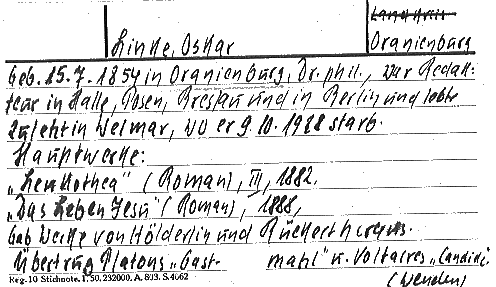 Landkreis
Linke, Oskar Oranienburg
Geb. 15.7.1854 in Oranienburg, Dr. phil., war Redak-
teur in Halle, Posen, Breslau und in Berlin und lebte
zuletzt in Weimar, wo er 9.10.1928 starb.
Hauptwerke:
„Leukothea" (Roman), III, 1882.
„Das Leben Jesu" (Roman), 1888,
Gab Werke von Hölderlin und Rückert heraus.
Übertrug Platons „Gast- mahl" u. Voltaires „Candide"
Reg.-10 Stichnote. 1. 50. 232000. A. 803. S. 4662
(Wenden)